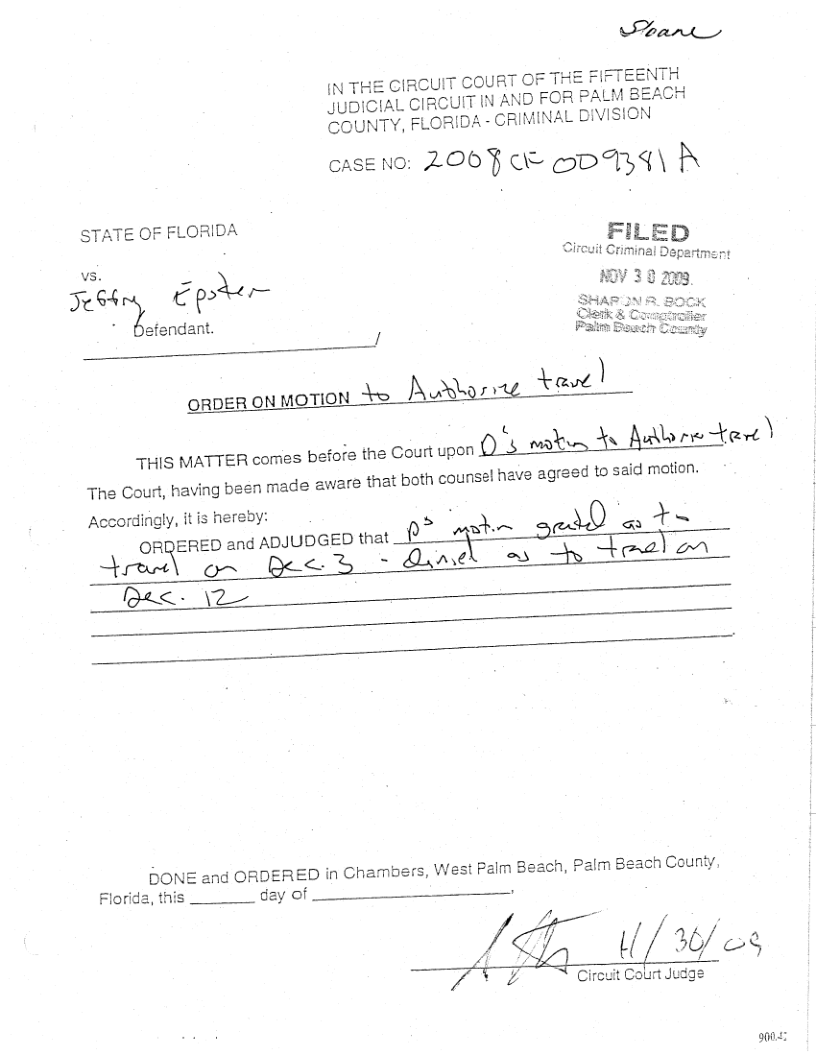 Sloane
IN THE CIRCUIT COURT OF THE FIFTEENTH
JUDICIAL CIRCUIT IN AND FOR PALM BEACH
COUNTY, FLORIDA - CRIMINAL DIVISION
CASE NO: 2008 CF 009381 A
STATE OF FLORIDA
vs.
Jeffrey Epstein
Defendant.
FILED
Circuit Criminal Department
NOV 30 2009
SHARON R. BOCK
Clerk & Comptroller
Palm Beach County
ORDER ON MOTION to Authorize travel
THIS MATTER comes before the Court upon D's motion to Authorize travel
The Court, having been made aware that both counsel have agreed to said motion.
Accordingly, it is hereby:
ORDERED and ADJUDGED that motion granted as to
travel on Dec. 3 - denied as to travel on
Dec. 12
DONE and ORDERED in Chambers, West Palm Beach, Palm Beach County,
Florida, this day of
11/30/09
Circuit Court Judge